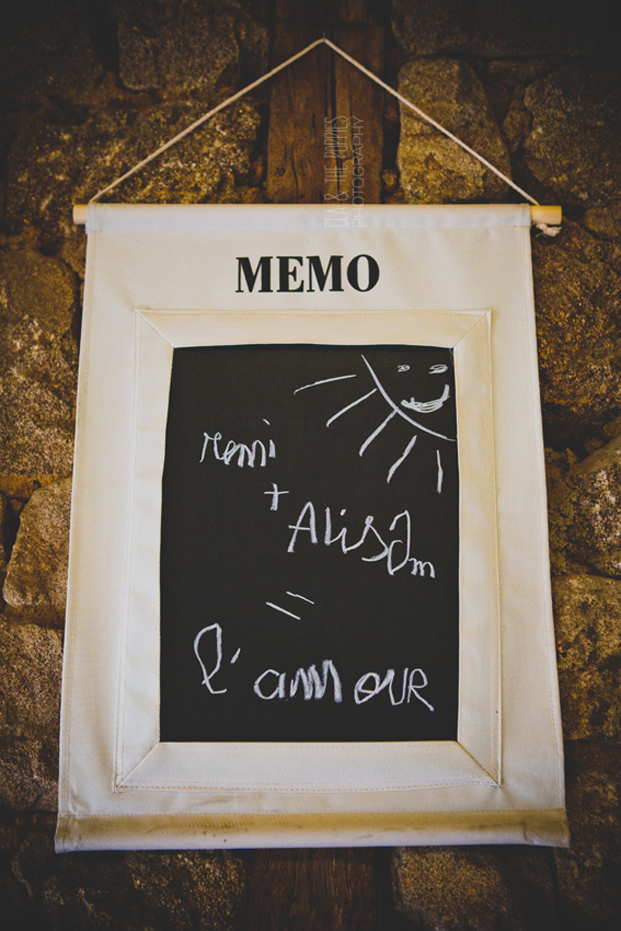 ELA & THE POPPIES
PHOTOGRAPHY
MEMO
remi
+
Alisom
=
l'amour